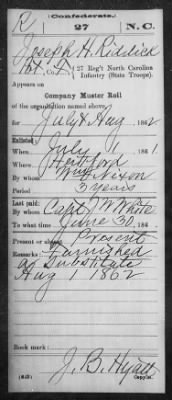 Confederate.
R 27 N.C.
Joseph H. Riddick
Pvt, Co. F, 27 Reg't North Carolina
Infantry (State Troops).
Appears on
Company Muster Roll
of the organization named above,
for July & Aug, 1862.
Enlisted:
When July 1, 1861
Where Hertford
By whom Wm Nixon
Period 3 years
Last paid:
By whom Capt T W White
To what time June 30, 186
Present or absent Present
Remarks: Furnished
a Substitute
Aug 1 1862
Book mark:
J. B. Hyatt
(642) Copyist.